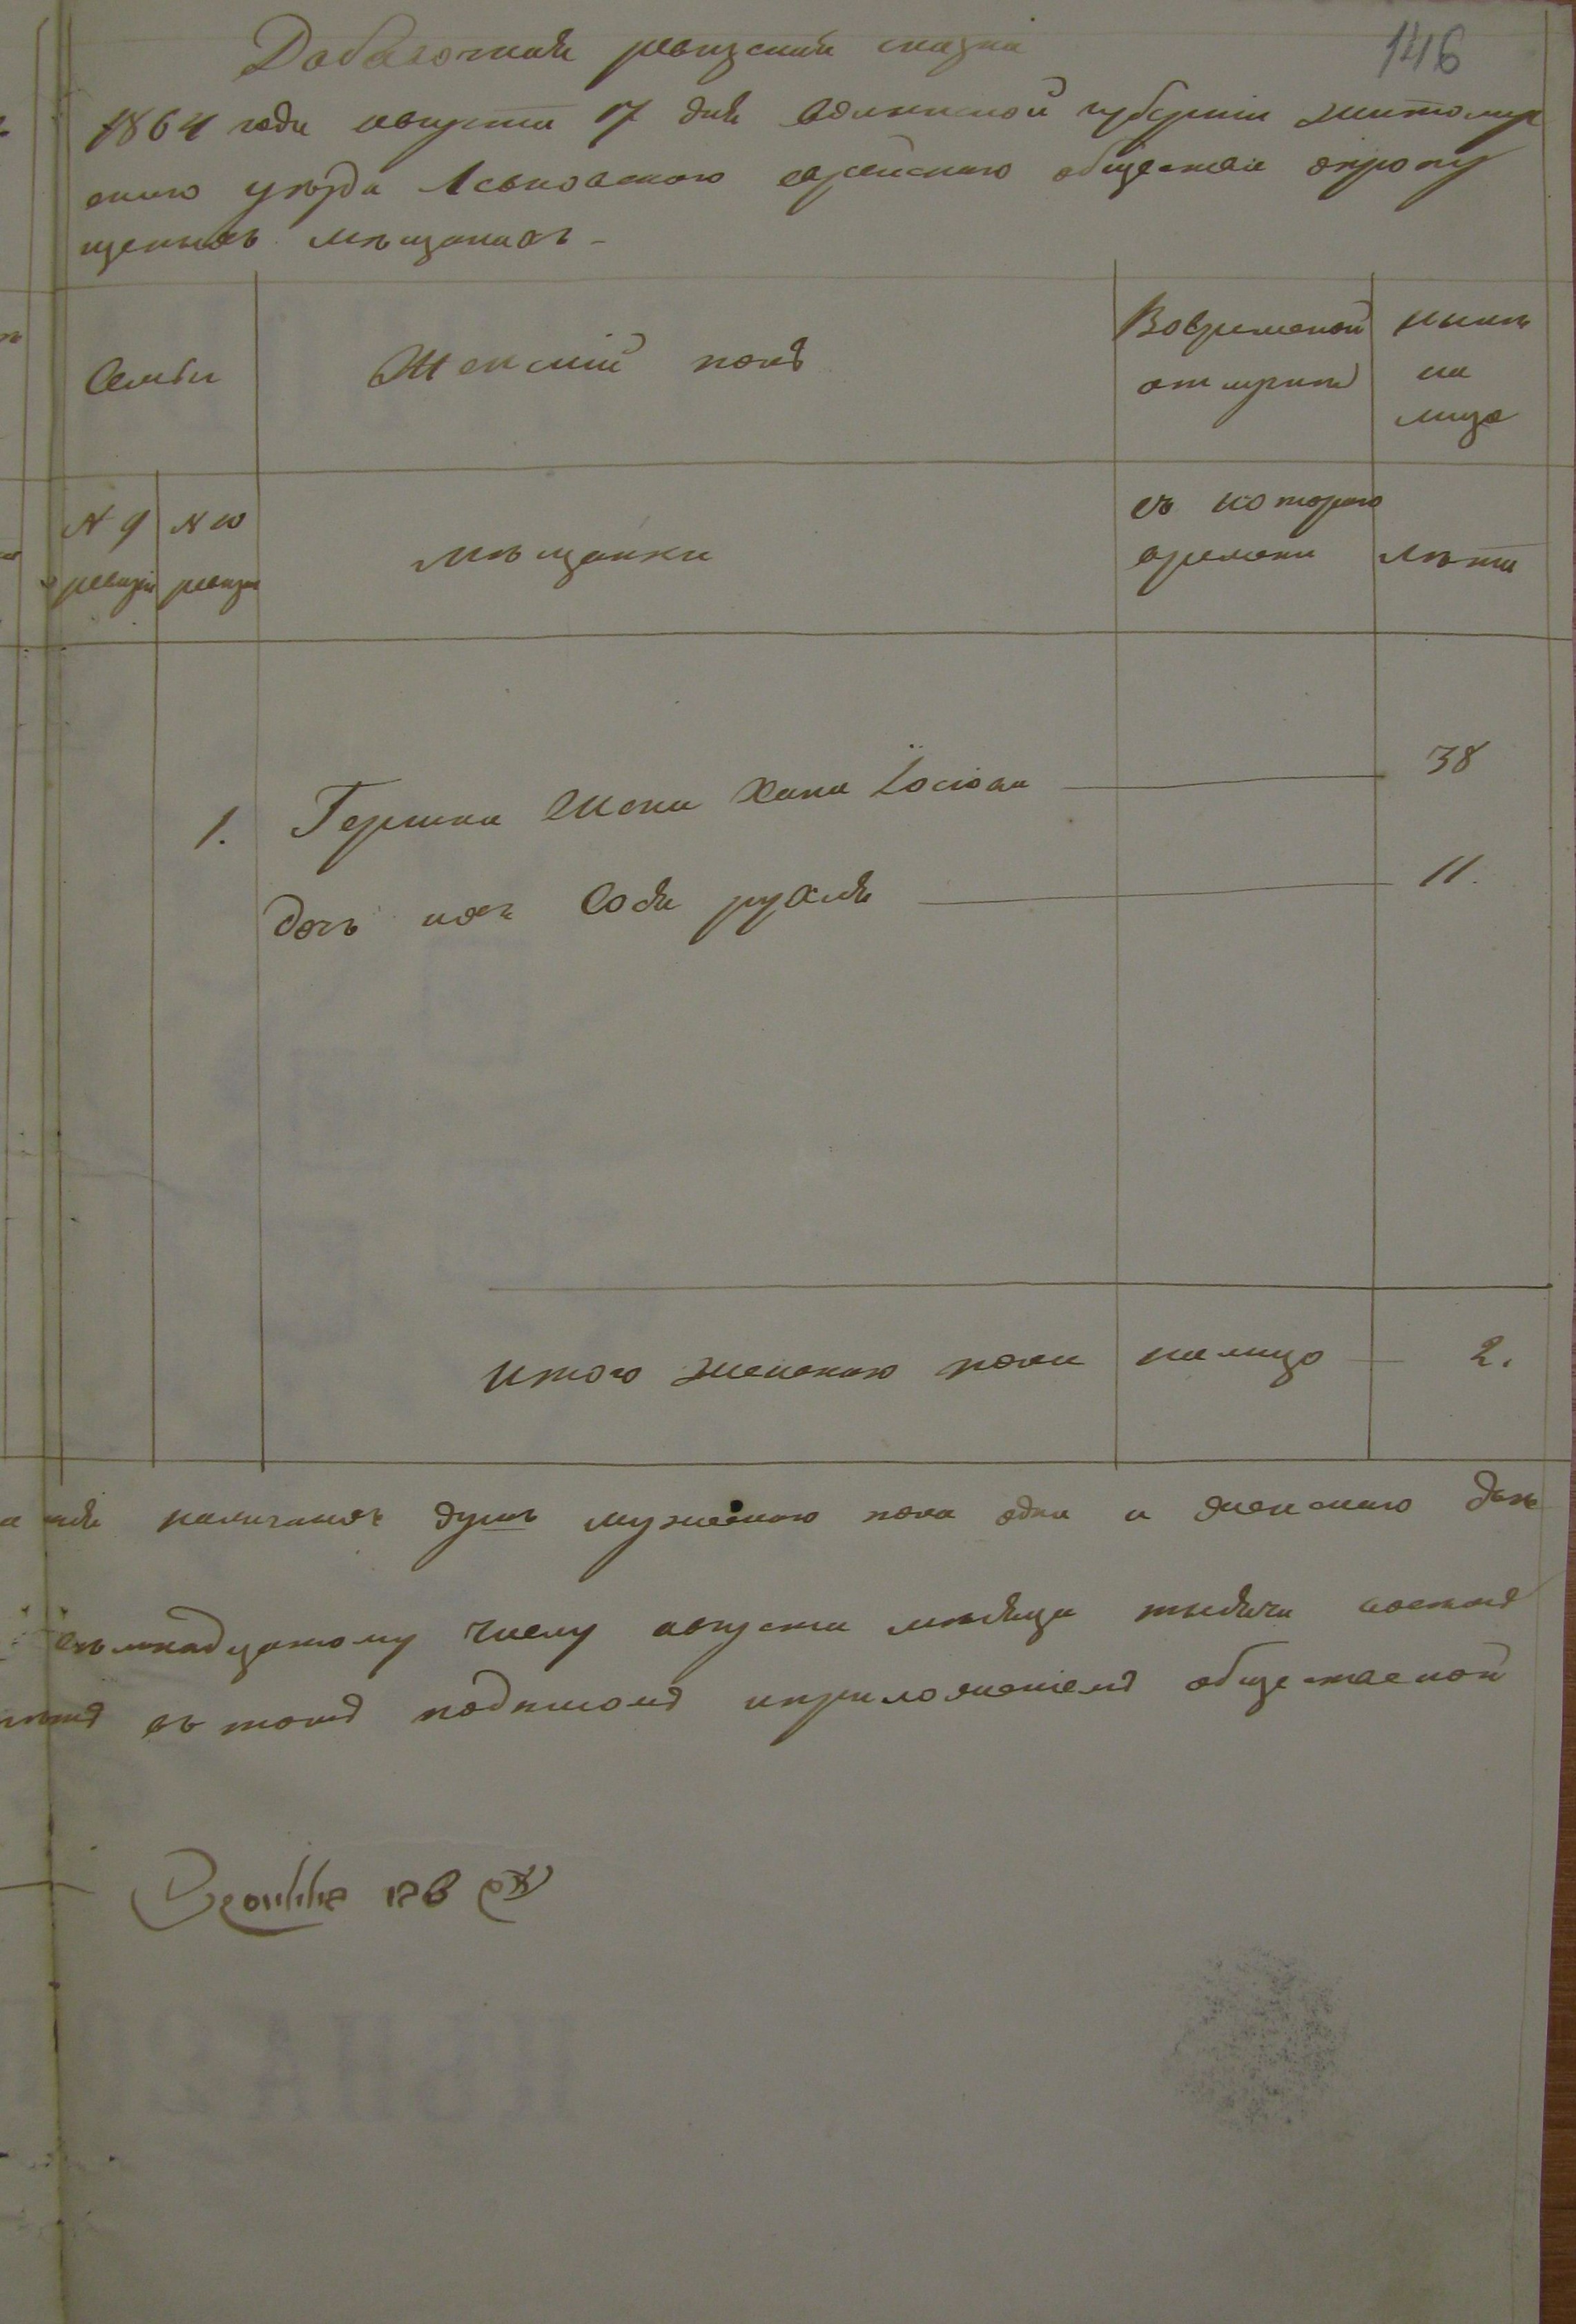 146
Добавочная ревизская сказка
1864 года августа 17 дня Волынской губернии Житомир
скаго уезда Левковскаго еврейскаго общества о пропу
щенныхъ мѣщанахъ -
Семьи
Женскій полъ
Вовременной отлучкѣ
ныне на лицо
№ 9 ревизіи
№ 10 ревизіи
мѣщанки
съ котораго времени
лѣта
1. Гершка жена Хана Іосіова 38
дочь ихъ Сося рухля 11.
итого женскаго пола налицо 2.
наличныхъ душъ мужескаго пола одна и женскаго двѣ
семнадцатому числу августа мѣсяца тысяча восемь
въ томъ подписомъ и приложеніемъ общественной